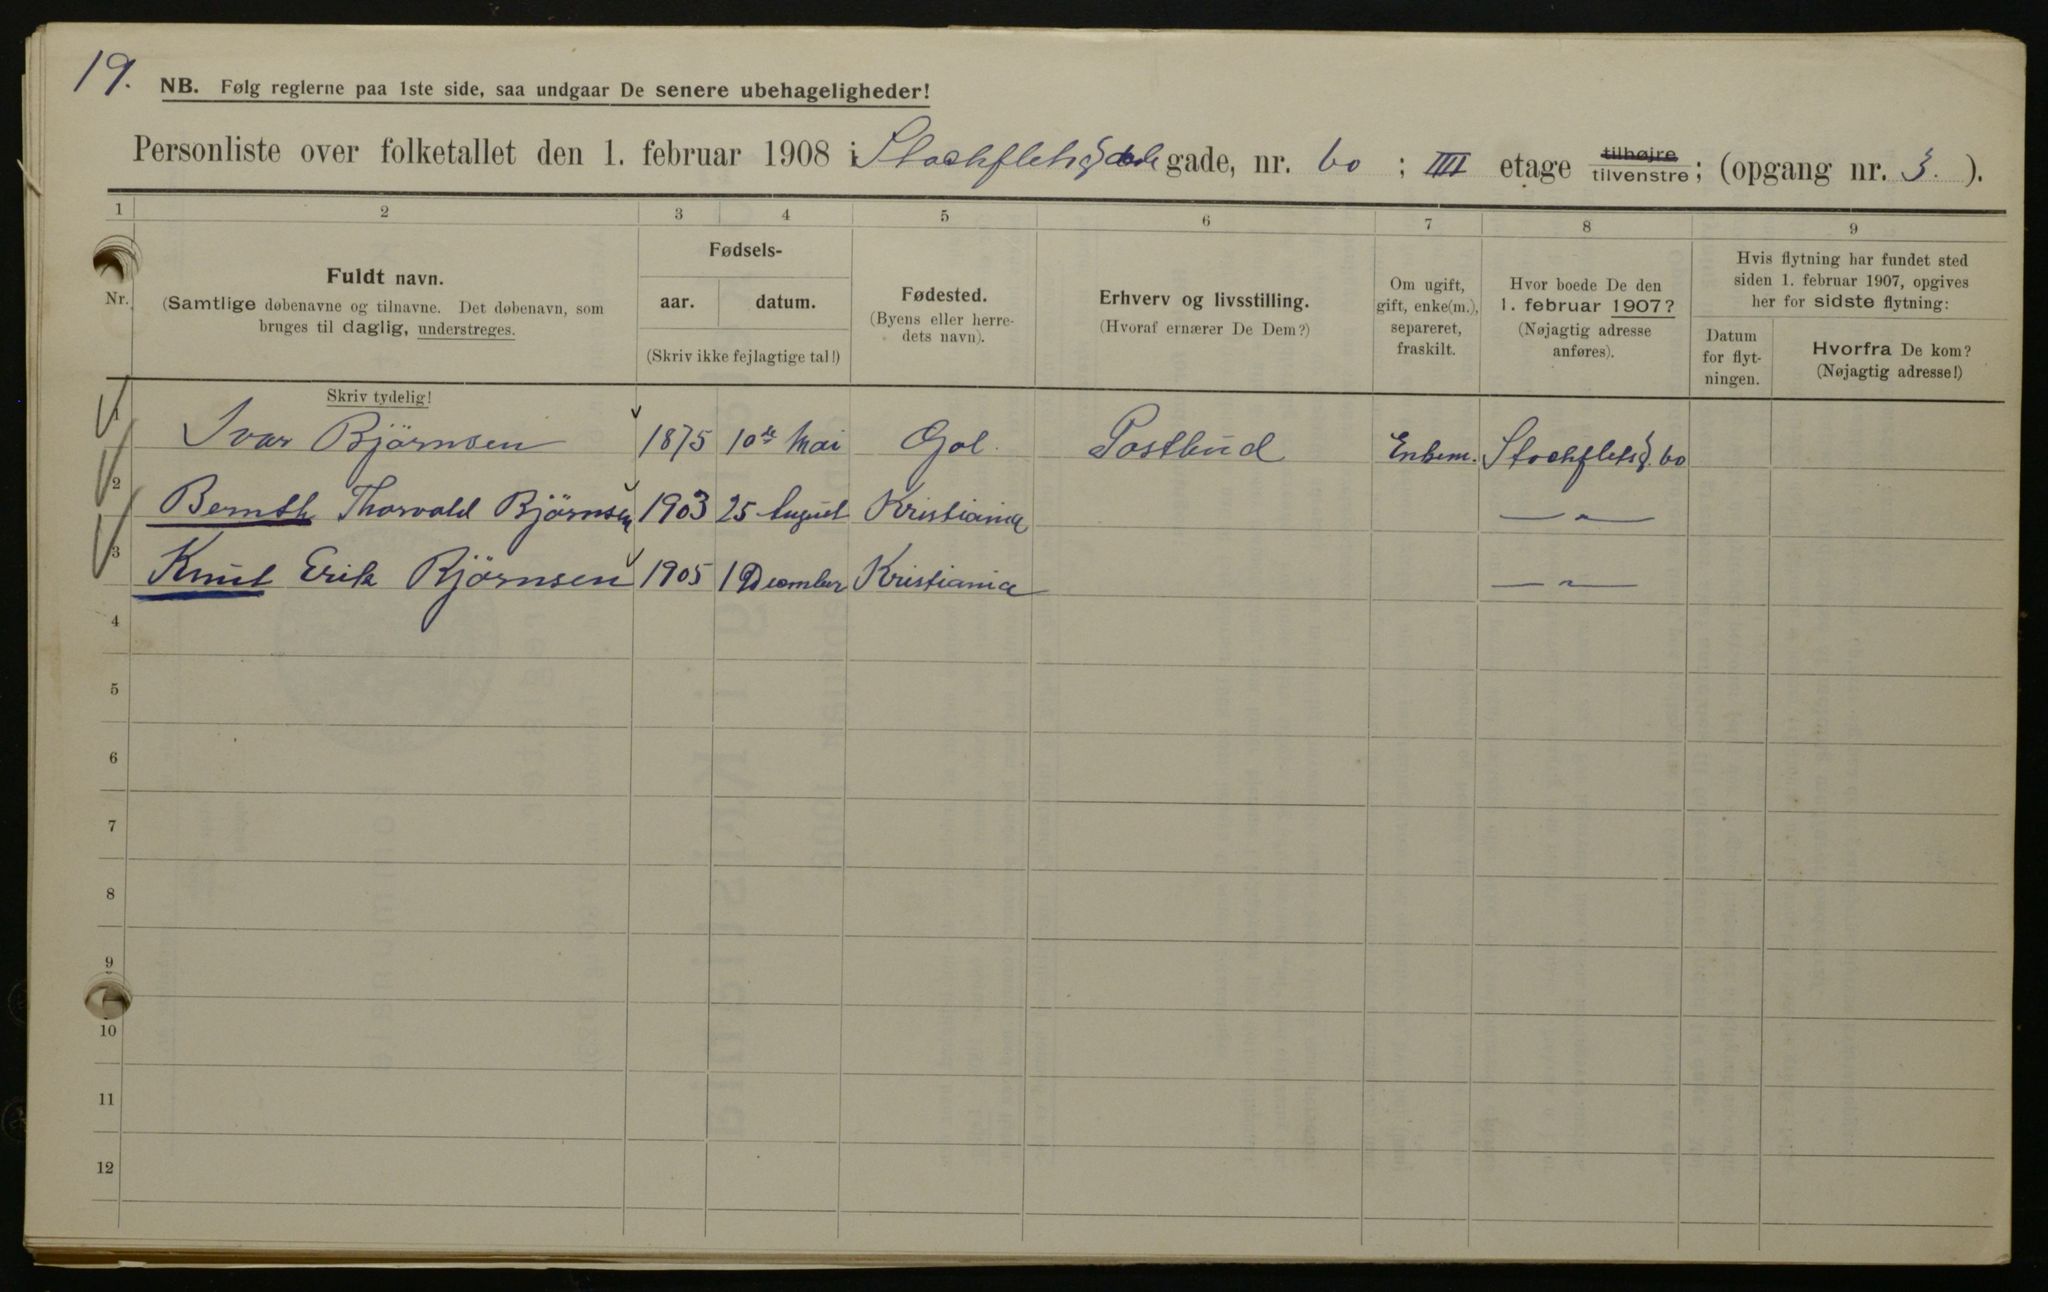 19.
NB. Følg reglerne paa 1ste side, saa undgaar De senere ubehageligheder!
Personliste over folketallet den 1. februar 1908 i Stockflets gade, nr. 60 ; IIII etage tilhøjre tilvenstre ; (opgang nr. 3. ).
1 2 3 4 5 6 7 8 9
Nr.
Fuldt navn.
(Samtlige døbenavne og tilnavne. Det døbenavn, som
bruges til daglig, understreges.
Fødsels-
aar. datum.
(Skriv ikke fejlagtige tal!)
Fødested.
(Byens eller herre-
dets navn).
Erhverv og livsstilling.
(Hvoraf ernærer De Dem?)
Om ugift,
gift, enke(m.),
separeret,
fraskilt.
Hvor boede De den
1. februar 1907?
(Nøjagtig adresse
anføres).
Hvis flytning har fundet sted
siden 1. februar 1907, opgives
her for sidste flytning:
Datum
for flyt-
ningen.
Hvorfra De kom?
(Nøjagtig adresse!)
Skriv tydelig!
1 Ivar Björnsen 1875 10de Mai Gol. Postbud Enkem. Stockfletsg. 60
2 Bernth Thorvald Björnsen 1903 25 August Kristiania — „ —
3 Knut Erik Björnsen 1905 1 December Kristiania — „ —
4
5
6
7
8
9
10
11
12